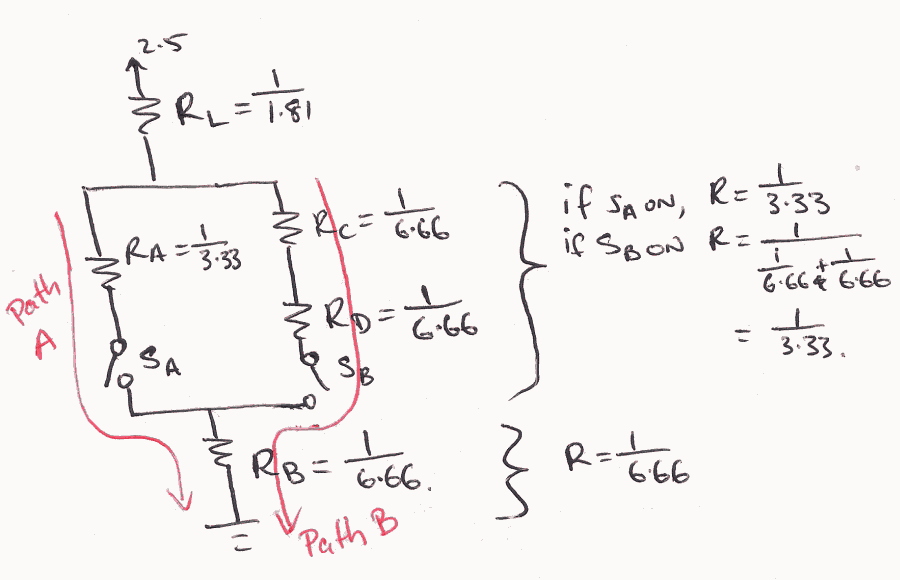 2.5
R_L = 1/1.81
R_A = 1/3.33
R_C = 1/6.66
R_D = 1/6.66
S_A
S_B
R_B = 1/6.66.
Path A
Path B
if S_A ON, R = 1/3.33
if S_B ON R = 1/(1/6.66 + 1/6.66)
= 1/3.33.
R = 1/6.66